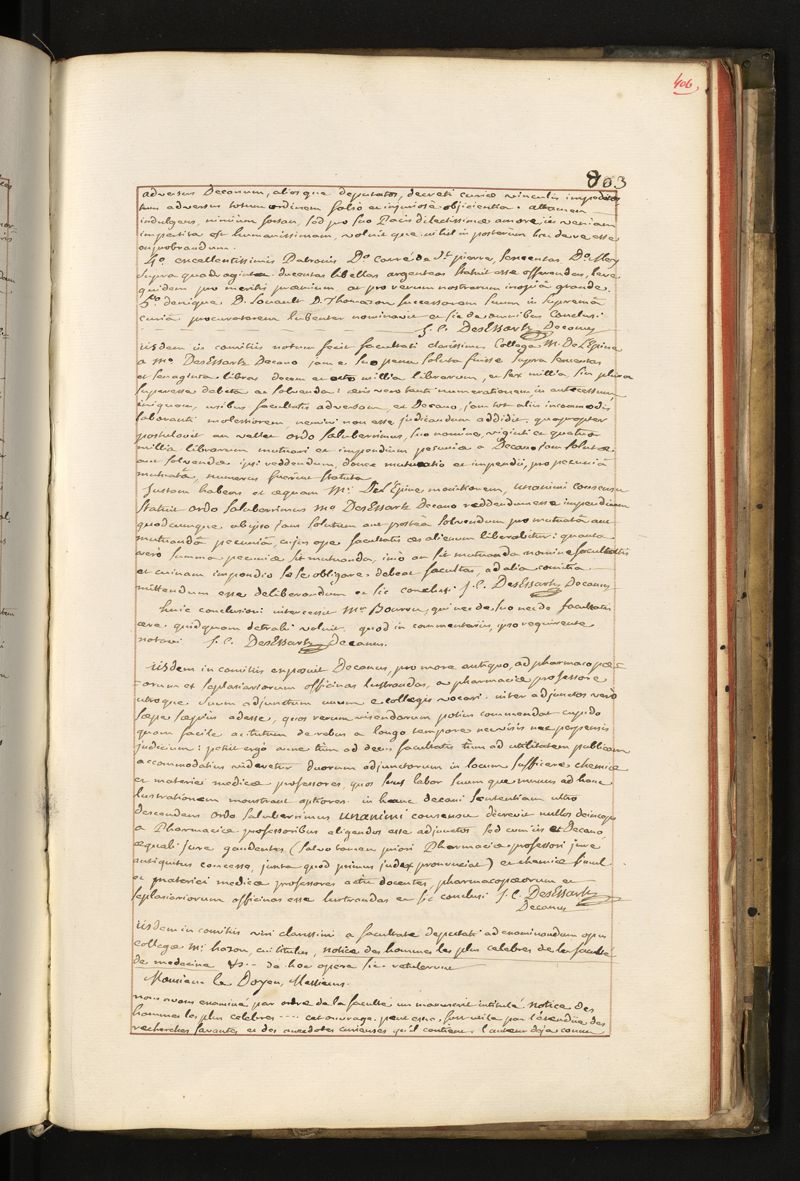 406,
803
adversus Decanum, aliosque deputatos, decreti curiæ vinculis impeditos
tum adversus totum ordinem falsò et injuriosè objicientia: attamen
indulgens, nimium forsan, sed pro suo Pacis dilectissimæ amore in veniam
impertita est humanissimam, voluit que nihil in posterum hac de re esse
exprobrandum.
4o. excellentissimis Patronis Do. carré de St. pierre, sexcentas Do. Mey
supra quadraginta ducentas libellas argenteas statuit esse offerendas, leve
quidem pro meritis præmium at pro rerum nostrarum inopiâ grande.
5o. denique D. Sonault D. Thomazon successorem suum in supremâ
curiâ procuratorem lubenter nominavit et sic de omnibus conclusi.
J. C. DesEssartz Decanus
iisdem in comitiis notum fecit facultati clarissimus Collega M. De L'Epine
a Mo. DesEssartz Decano jam e suo penu soluta fuisse supra sexcentas
et sexaginta libras decem et octo millia librarum, et sex millia sin plura
superesse debita et solvenda:
iniquam, usibus facultatis adversam, et Decano, jam tot aliis incommodis
laboranti molestiorem, nemini non esse judicandam addidit. quapropter
postulavit an vellet ordo saluberrimus, suo nomine, viginti et quatuor
millia librarum mutuari et impendium pecuniæ a Decano jam solutæ
aut solvendæ ipsi reddendum, donec mutuatio et impendii, pro pecuniâ
mutuatâ, numerus fuerint statuta.
Justam habens et æquam Mi. De L'Epine monitionem, unanimi consensu
statuit ordo saluberrimus Mo. DesEssartz Decano reddendum esse impendium
quodcumque ab ipso jam solutum aut posteà solvendum pro mutuatâ aut
mutuandâ pecuniâ, cujus ope facultatis æs alienum liberabitur: quanta
verò summa pecuniæ sit mutuanda, imò an sit mutuanda nomine facultatis
et cuinam impendio sese obligare debeat facultas, ad alia comitia
mittendum esse deliberandum et sic conclusi J. C. DesEssartz Decanus
huic conclusioni intercessit Mr. Bourru, qui nec de suo nec de facultatis
ære quidquam detrahi voluit. quod in commentariis, ipso requirente
notavi J. C. DesEssartz Decanus.
iisdem in comitiis exposuit Decanus, pro more antiquo, ad pharmacopæ-
-orum et seplasiariorum officinas lustrandas, a pharmaciæ professore
utroque suum adjunctum unum e collegis vocari. inter adjunctos verò
sæpe sæpiùs adesse, quos rerum visendarum potius commendat cupido
quam facile acutum de rebus a longo tempore nec visis nec perpensis
judicium: petiit ergò anne tùm ad decus facultatis tùm ad utilitatem publicam
accommodatius videretur duorum adjunctorum in locum sufficere chemiæ
et materiæ medicæ professores, quos suus labor suumque munus ad hanc
lustrationem monstrant aptiores. in hanc decani sententiam ultrò
descendens ordo saluberrimus unanimi consensu decrevit nullos deinceps
a Pharmaciæ professoribus eligendos esse adjunctos, sed cum iis et Decano,
æquali jure gaudentes (salvo tamen priori Pharmaciæ professori jure
antiquitus concesso, juxta quod primus judex pronunciat) et chemiæ simul
et materiei medicæ professores actu docentes, pharmacopæorum et
seplasiariorum officinas esse lustrandas et sic conclusi J. C. DesEssartz
Decanus
iisdem in comitiis viri clarissimi a facultate deputati ad examinandum opus
collegæ Mi. hazon, cui titulus, notice des hommes les plus celebres de la faculté
de medecine &c.. de hoc opere sic retulerunt
Monsieur le Doyen, Messieurs.
nous avons examiné par ordre de la faculté un manuscrit intitulé notice des
hommes les plus celebres .... cet ouvrage peut etre fort utile par l'étendüe des
recherches savantes et des anecdotes curieuses qu'il contient. l'auteur deja connu